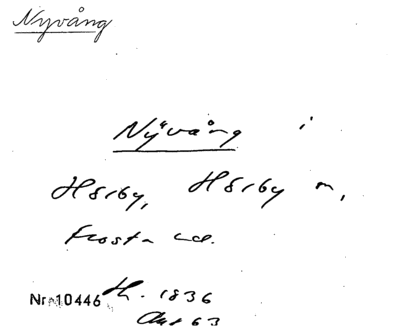 Nyvång
Nyvång i
Hörby, Hörby sn,
Frosta hd.
Nr 10446 Th. 1836
Avt 63